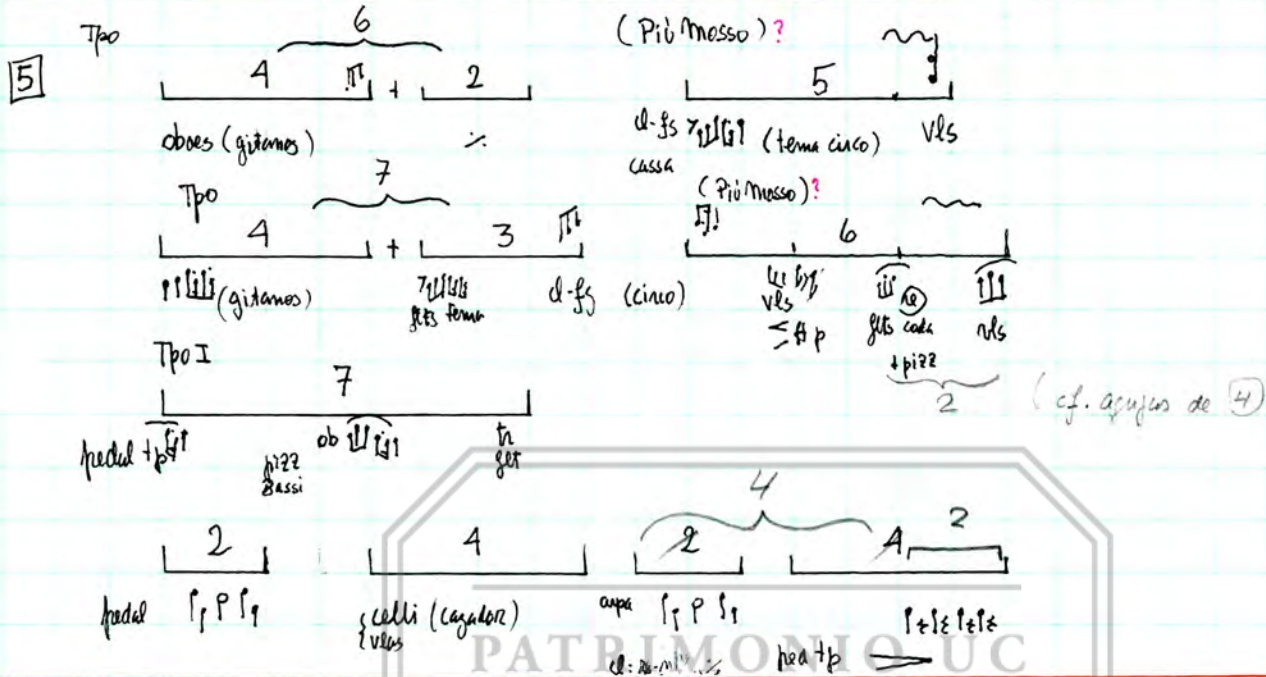 Tpo 6 (Più Mosso) ?
5 4 + 2 5
oboes (gitanos) ٪ cl-fg (tema circo) vls
cassa
Tpo 7 (Più Mosso) ?
4 + 3 6
(gitanos) flts tema cl-fg (circo) vls flts coda vls
p + pizz
2 (cf. agujas de 4)
Tpo I
7
pedal + p ob
pizz
Bassi flt
2 4 2 4 4 2
pedal celli (cazador) arpa
vlas
PATRIMONIO UC